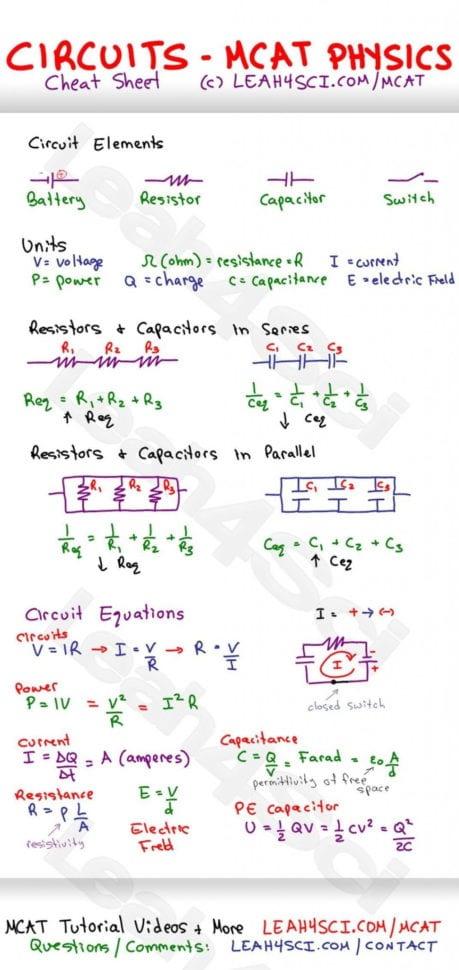 CIRCUITS - MCAT PHYSICS
Cheat Sheet (c) LEAH4SCI.COM/MCAT
Circuit Elements
+
Battery Resistor Capacitor Switch
Units
V = voltage Ω (ohm) = resistance = R I = current
P = power Q = charge C = capacitance E = electric Field
Resistors + Capacitors In Series
R1 R2 R3 C1 C2 C3
Req = R1 + R2 + R3 1/Ceq = 1/C1 + 1/C2 + 1/C3
↑ Req ↓ Ceq
Resistors + Capacitors In Parallel
R1 R2 R3 C1 C2 C3
1/Req = 1/R1 + 1/R2 + 1/R3 Ceq = C1 + C2 + C3
↓ Req ↑ Ceq
Circuit Equations I = + → (-)
Circuits
V = IR → I = V/R → R = V/I
I - +
closed switch
Power
P = IV = V²/R = I²R
Current Capacitance
I = ΔQ/Δt = A (amperes) C = Q/V = Farad = ε0 A/d
permittivity of free space
Resistance E = V/d PE capacitor
R = ρ L/A U = 1/2 QV = 1/2 CV² = Q²/2C
resistivity Electric
Field
MCAT Tutorial Videos + More LEAH4SCI.COM/MCAT
Questions / Comments: LEAH4SCI.COM / CONTACT
Leah4Sci
Leah4Sci
Leah4Sci